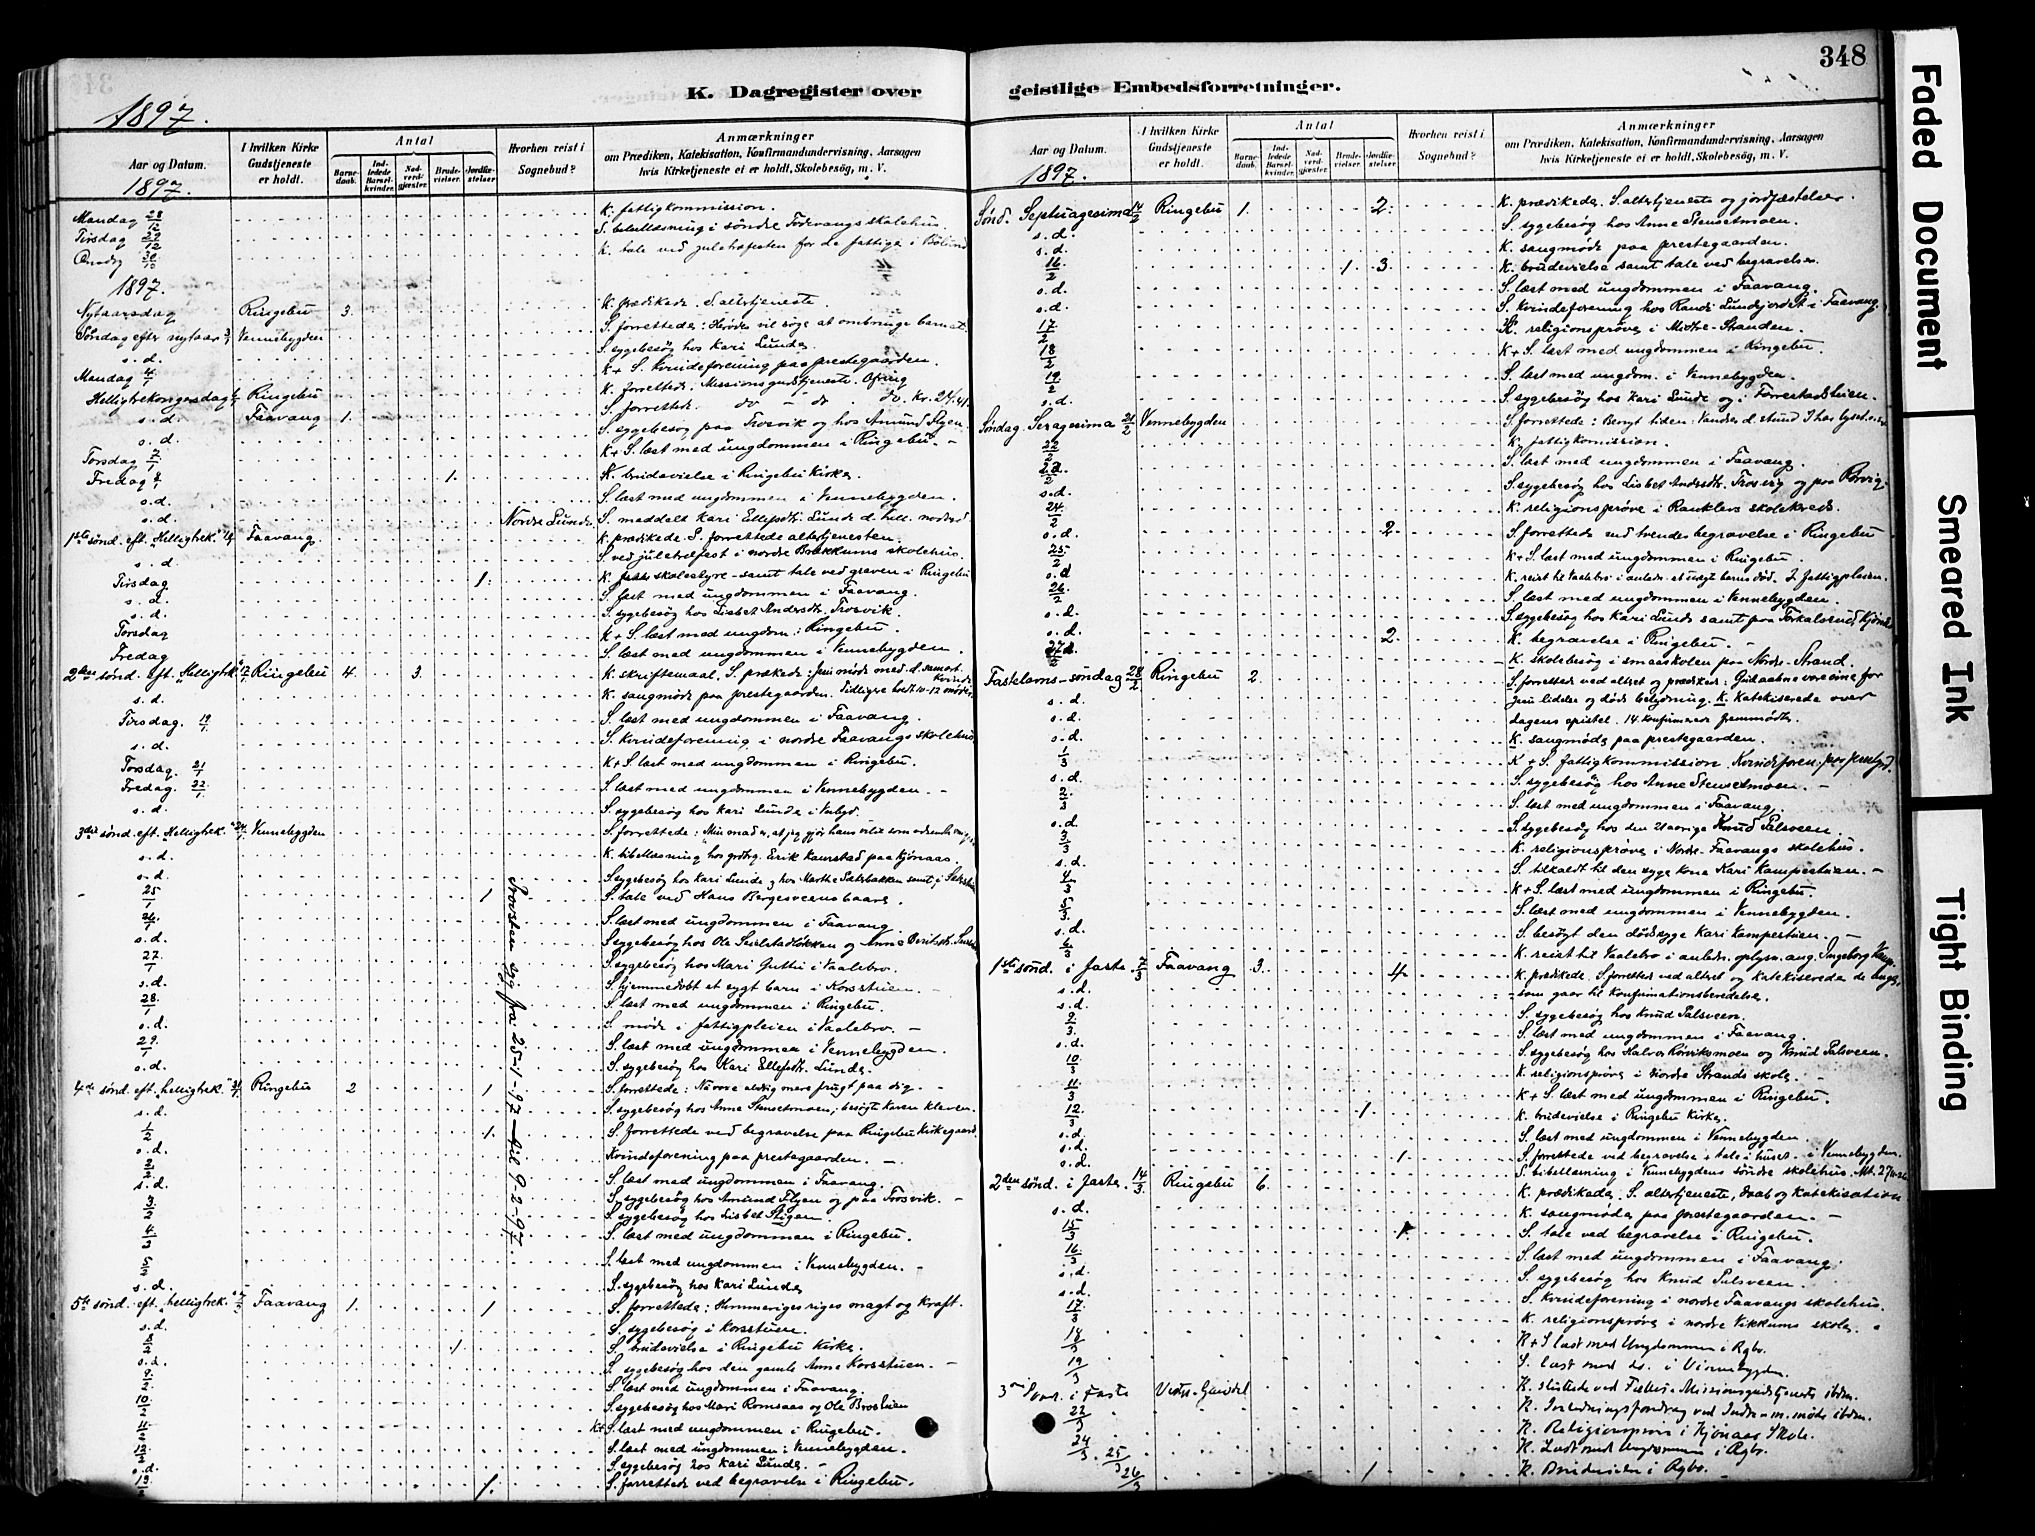 348
K. Dagregister over geistlige Embedsforretninger.
1897.
Aar og Datum.
1897.
I hvilken Kirke Gudstjeneste er holdt.
Antal
Barne-daab.
Ind-ledede Barsel-kvinder.
Nad-verd-gjæster.
Brude-vielser.
Jordfæ-stelser
Hvorhen reist i Sognebud?
Anmærkninger
om Prædiken, Katekisation, Konfirmandundervisning, Aarsagen
hvis Kirketjeneste ei er holdt, Skolebesøg, m. V.
Mandag 28/12 K. fattigkommission.
Tirsdag 29/12 S. bibellæsning i søndre Faavangs skolehus
Onsdag 30/12 K. tale ved julehøfesten for de fattige i
1897.
Nytaarsdag Ringebu 3. K. prædikede. S altertjeneste
Søndag efter nytaar 3/1 Vennebygden S. forrettede: Herodes vil søge at ombringe barnet.
s. d. S. sygebesøg hos Kari Lunde
Mandag 4/1 K + S. Kvindeforening paa prestegaarden.
Helligtrekongersdag 6/1 Ringebu K. forrettede. Missionsgudstjeneste. Ofring
s. d. Faavang 1. S. forrettede do - do do. kr. 24,41.
s. d. S. sygebesøg paa Trosvik og hos Amund Flyen.
Torsdag 7/1 K + S. læst med ungdommen i Ringebu. -
Fredag 8/1 1. K. brudevielse i Ringebu Kirke
s. d. S. læst med ungdommen i Vennebygden.
s. d. Nordre Lunde S. meddelt Kari Ellefsdtr. Lunde d. hell. nadverd.
1ste sønd. eft. Helligtrek. Faavang. K. prædikede. S. forrettede altertjenesten.
s. d. S. ved juletræfest i nordre Brekkums skolehus.
Tirsdag 1. K. skolestyre - samt tale ved graven i Ringebu
s. d. S. læst med ungdommen i Faavang.
s. d. S. sygebesøg hos Lisbet Andersdtr. Trosvik.
Torsdag K + S. læst med ungdom. i Ringebu.
Fredag S. læst med ungdommen i Vennebygden
2den sønd. eft. Helligtrek. 17/1 Ringebu 4. 3. K. skriftemaal, S. prækede: Jesu møde med d. samarit. Kvinde
s. d. K. sangmøde paa prestegaarden. Tidligere holdt 10-12 møder
Tirsdag. 19/1 S. læst med ungdommen i Faavang.
s. d. S. Kvindeforening i nordre Faavangs skolehus
Torsdag. 21/1 K + S. læst med ungdommen i Ringebu.
Fredag. 22/1 S. læst med ungdommen i Vennebygden. -
s. d. S. sygebesøg hos Kari Lunde i
3die sønd. eft. Helligtrek. 24/1 Vennebygden S. forrettede: Min mad er, at jeg gjør hans vilie som
s. d. K. bibellæsning hos Erik Kaurstad paa Kjønaas.
s. d. S. sygebesøg hos Kari Lunde og hos Marthe Sætrbakken samt i
25/1 1 S. tale ved Hans Bergesveens baare.
26/1 S. læst med ungdommen i Faavang
s. d. S. sygebesøg hos Ole og Anne
27/1 S. sygebesøg hos Mari Guthu i Vaalebro.
s. d. S. hjemmedøbt et sygt barn i Korsstuen. -
28/1 S. læst med ungdommen i Ringebu.
s. d. S. møde i fattigpleien i Vaalebro. -
29/1 S. læst med ungdommen i Vennebygden.
s. d. S. sygebesøg hos Kari Ellefsdtr. Lunde.
4de sønd. eft. helligtrek. 31/1 Ringebu 2 1 S. forrettede: Ni vore aldrig mere frugt paa dig. -
s. d. S. sygebesøg hos Anne Stensetmoen; besøgt Karen Kleven.
1/2 1. S. forrettede ved begravelse paa Ringebu Kirkegaard.
s. d. Kvindeforening paa prestegaarden. -
2/2 S. læst med ungdommen i Faavang.
s. d. S. sygebesøg hos Amund Flyen og paa Trosvik. -
3/2 S. sygebesøg hos Lisbet Stigen.
4/2 S. læst med ungdommen i Ringebu.
5/2 S. læst med ungdommen i Vennebygden. -
s. d. S. sygebesøg hos Kari Lunde
5te sønd. eft. helligtrek. 7/2 Faavang 1. 1 S. forrettede: Himmeriges riges magt og kraft.
s. d. S. sygebesøg i Korsstuen.
8/2 1 S. brudevielse i Ringebu Kirke
s. d. S. sygebesøg hos den gamle Anne Korsstuen. -
9/2 S. læst med ungdommen i Faavang.
10/2 S. sygebesøg hos Mari Romsaas og Ole Brostuen
11/2 K+S. læst med ungdommen i Ringebu.
12/2 S. læst med ungdommen i Vennebygden.
s. d. S. sygebesøg hos Kari Lunde. -
13/2 1. S. forrettede ved begravelse i Ringebu.
Provsten syg fra 25-1-97 - til 9-2-97.
Aar og Datum.
1897.
I hvilken Kirke Gudstjeneste er holdt.
Antal
Barne-daab.
Ind-ledede Barsel-kvinder.
Nad-verd-gjæster.
Brude-vielser.
Jordfæ-stelser
Hvorhen reist i Sognebud?
Anmærkninger
om Prædiken, Katekisation, Konfirmandundervisning, Aarsagen
hvis Kirketjeneste ei er holdt, Skolebesøg, m. V.
Sønd. Septuagesima 14/2 Ringebu 1. 2. K. prædikede. S. altertjeneste og jordfæstelser.
s. d. S. sygebesøg hos Anne Stensetmoen.
s. d. K. sangmøde paa prestegaarden.
16/2 1. 3. K. brudevielse samt tale ved begravelse.
s. d. S. læst med ungdommen i Faavang.
s. d. S. kvindeforening hos Randi Lundejordet i Faavang
17/2 K. religionsprøve i Midtre-Stranden.
18/2 K + S. læst med ungdommen i Ringebu.
19/2 S. læst med ungdom. i Vennebygden.
s. d. S. sygebesøg hos Kari Lunde og i Forrestadstuen.
Søndag Sexagesima 21/2 Vennebygden S. forrettede: Benyt tiden: Vandre d. stund I har lyset
22/2 K. fattigkomission.
S. læst med ungdommen i Faavang.
s. d. S. sygebesøg hos Lisbet Andersdtr. Trosvig og paa Rørvig.
24/2 K. religionsprøve i Ranklev skolekreds.
s. d. 2. S. forrettede ved tvendes begravelse i Ringebu
25/2 K + S. læst med ungdommen i Ringebu.
s. d K. reist til Vaalebro i anledn. et sygt barns død. I fattigpleien.
26/2 S. læst med ungdommen i Vennebygden.
s. d. S. sygebesøg hos Kari Lunde samt paa
s. d. 2. K. begravelse i Ringebu. -
27/2 K. skolebesøg i smaaskolen paa Nordr. Strand.
Fastelavns-søndag 28/2 Ringebu 2. S. forrettede ved altret og prædikede: Gid aabne vore øine for
s. d. Jesu lidelse og døds betydning. K. Katekiserede over
s. d. dagens epistel. 14 konfirmerede fremmødte.
s. d. K. sangmøde paa prestegaarden.
1/3 K + S. fattigkommission. Kvindeforen. paa prestgd.
s. d. S. sygebesøg hos Anne Stensetmoen. -
2/3 S. læst med ungdommen i Faavang.
s. d. S. sygebesøg hos den 21aarige Knud Pulsveen.
3/3 K. religionsprøve i Nordre-Faavangs skolehus.
s. d. S. tilkaldt til den syge kone Kari Kampestuen. -
4/3 K + S. læst med ungdommen i Ringebu.
5/3 S. læst med ungdommen i Vennebygden.
s. d. S. besøgt den dødssyge Kari Kampestuen. -
6/3 K. reist til Vaalebro i anledn. oplysn. ang. Ingeborg
1ste sønd. i faste. 7/3 Faavang 3. 4 K. prædikede. S forrettede ved altret og katekiserede de unge,
s. d. som gaar til Konfirmationsberedelse.
s. d. S. sygebesøg hos Knud Pulsveen.
9/3 S. læst med ungdommen i Faavang.
s. d. S. sygebesøg hos Halvor Rørviksmoen og Knud Pulsveen.
10/3 K. religionsprøve i Nordre Strands skole. -
11/3 K + S. læst med ungdommen i Ringebu.
12/3 1. K. brudevielse i Ringebu Kirke.
s. d. S. læst med ungdommen i Vennebygden.
s. d. 1 S. forrettede ved begravelse - tale i huset - i Vennebygden.
s. d. S. bibellæsning i Vennebygdens søndre skolehus.
2den sønd. i faste. 14/3 Ringebu 6. K. prædikede. S. altertjeneste, daab og katekisation
s. d. K. sangmøde paa prestegaarden. -
15/3 1 S. tale ved begravelse i Ringebu.
16/3 S. læst med ungdommen i Faavang.
s. d. S. sygebesøg hos Knud Pulsveen.
s. d. S. Kvindeforening i nordre Faavangs skolehus.
17/3 K. religionsprøve i nordre Vekkums skole.
18/3 K + S læst med Ungdommen i Rgbo.
19/3 S. læst med do. i Vennebygden
3die i Faste K. Missionsgudstjeneste ibdm.
22/3 K. Indledningsforedrag ved Indre-m. møde ibdm.
24/3 K. Religionsprøve i Kjønaas Skole.
25/3 K. Læst med Ungdommen i Rgbo.
26/3 1 K. Brudevielse i Rgbo.
Faded Document
Smeared Ink
Tight Binding